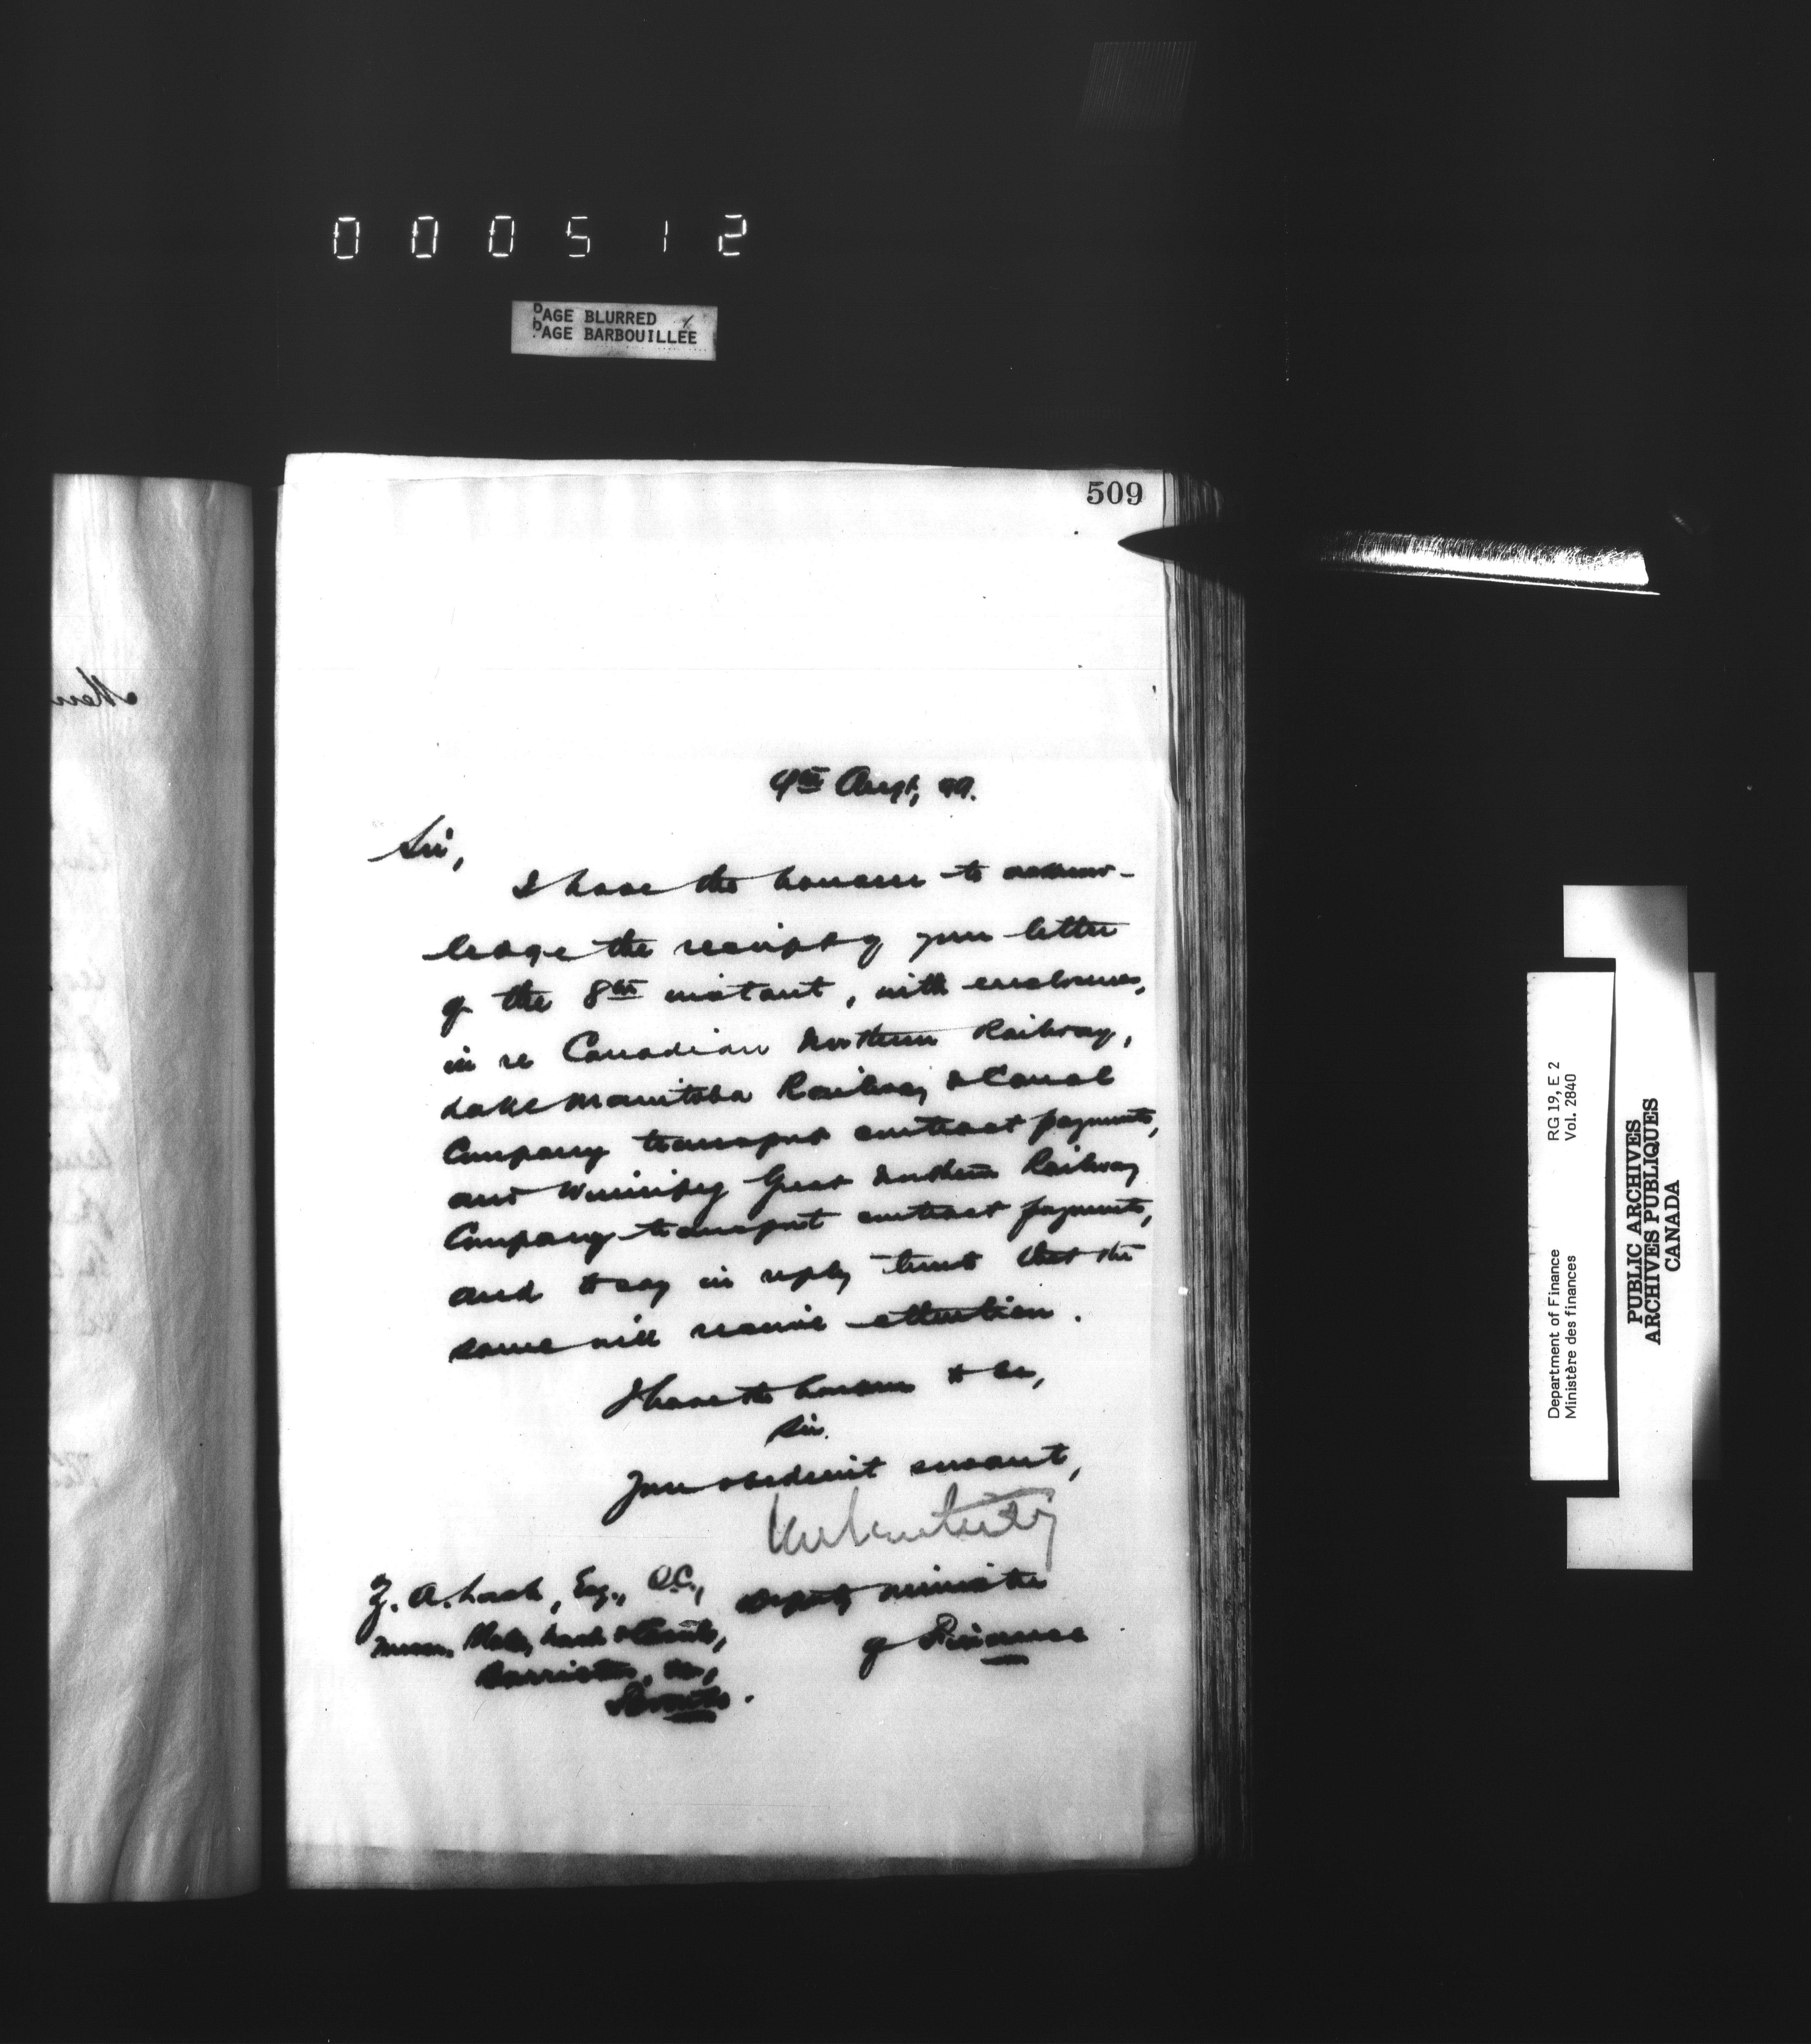 000512
PAGE BLURRED
PAGE BARBOUILLEE
509
9th Augt, 99.
Sir,
I have the honour to acknow-
ledge the receipt of your letter
of the 8th instant, with enclosures,
in re Canadian Northern Railway,
Lake Manitoba Railway & Canal
Company transport contract payments,
and Winnipeg Great Northern Railway
Company transport contract payments,
and to say in reply that the
same will receive attention.
I have the honour to be,
Sir.
Your obedient servant,
Deputy Minister
of Finance
Z. A. Lash, Esq., Q.C.,
Messrs. Blake, Lash & Cassels,
Barristers, &c,
Toronto.
Department of Finance RG 19, E 2
Ministère des finances Vol. 2840
PUBLIC ARCHIVES
ARCHIVES PUBLIQUES
CANADA